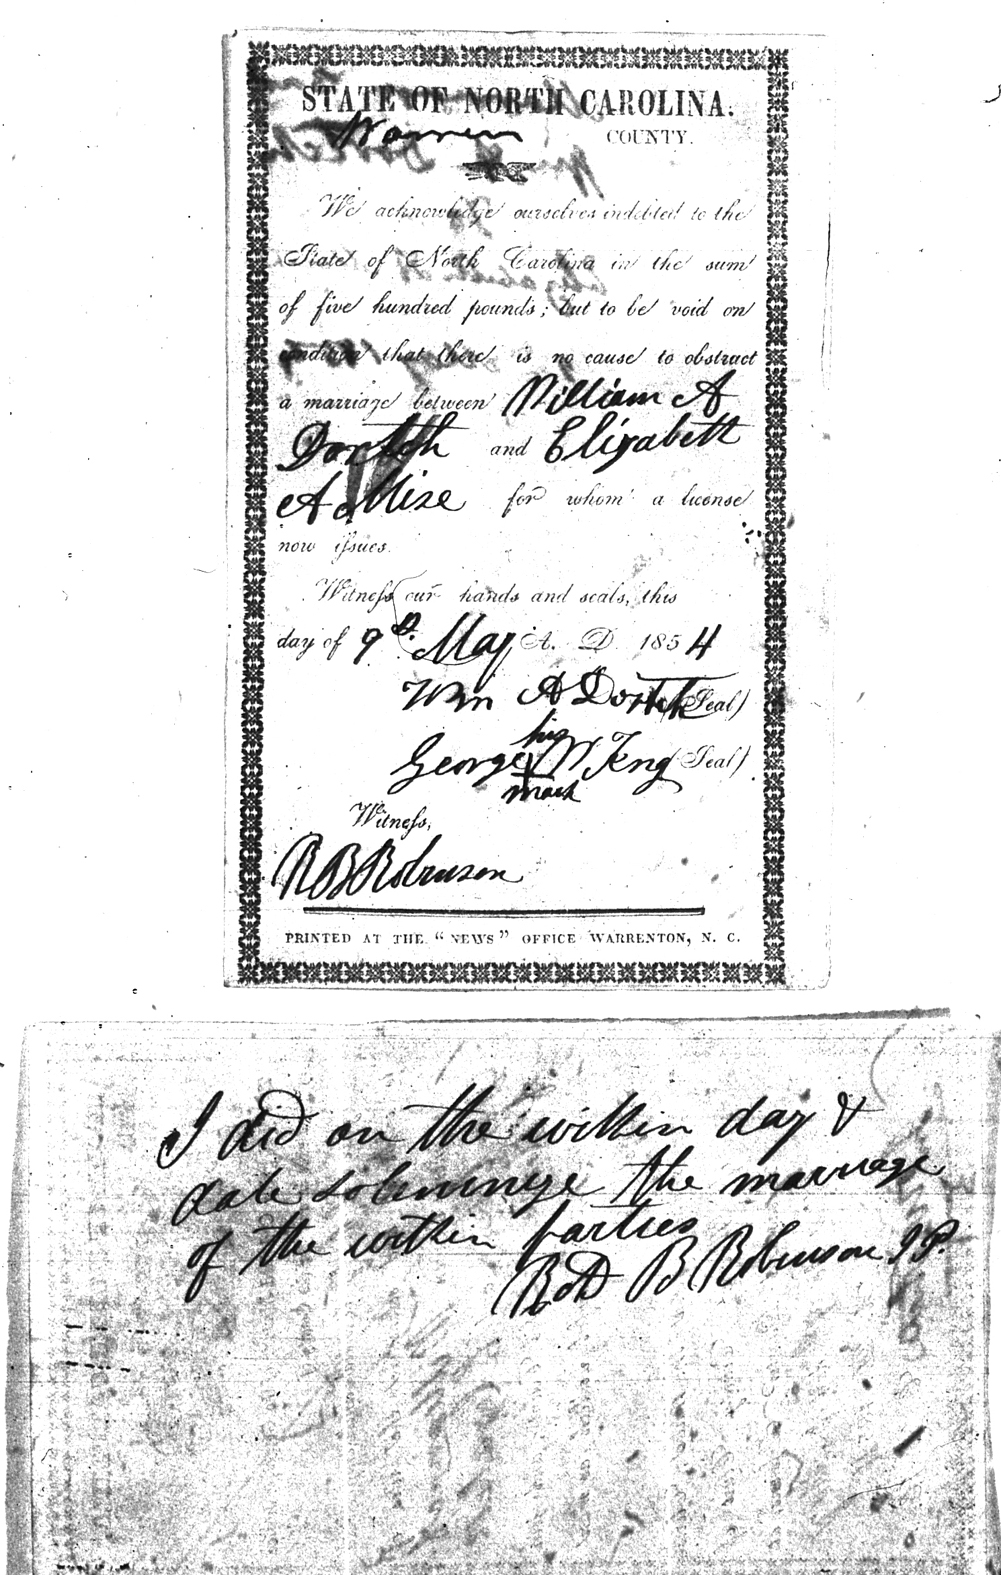 STATE OF NORTH CAROLINA.
Warren COUNTY.
We acknowledge ourselves indebted to the
State of North Carolina in the sum
of five hundred pounds; but to be void on
condition that there is no cause to obstract
a marriage between William A
Dortch and Elizabeth
A Mise for whom a license
now issues.
Witness our hands and seals, this
day of 9th May A. D. 1854
Wm A Dortch (Seal)
his
George W King (Seal)
mark
Witness,
R B Robinson
PRINTED AT THE "NEWS" OFFICE WARRENTON, N. C.
I did on the within day &
date solemnize the marriage
of the within parties
RoD B Robinson J P.